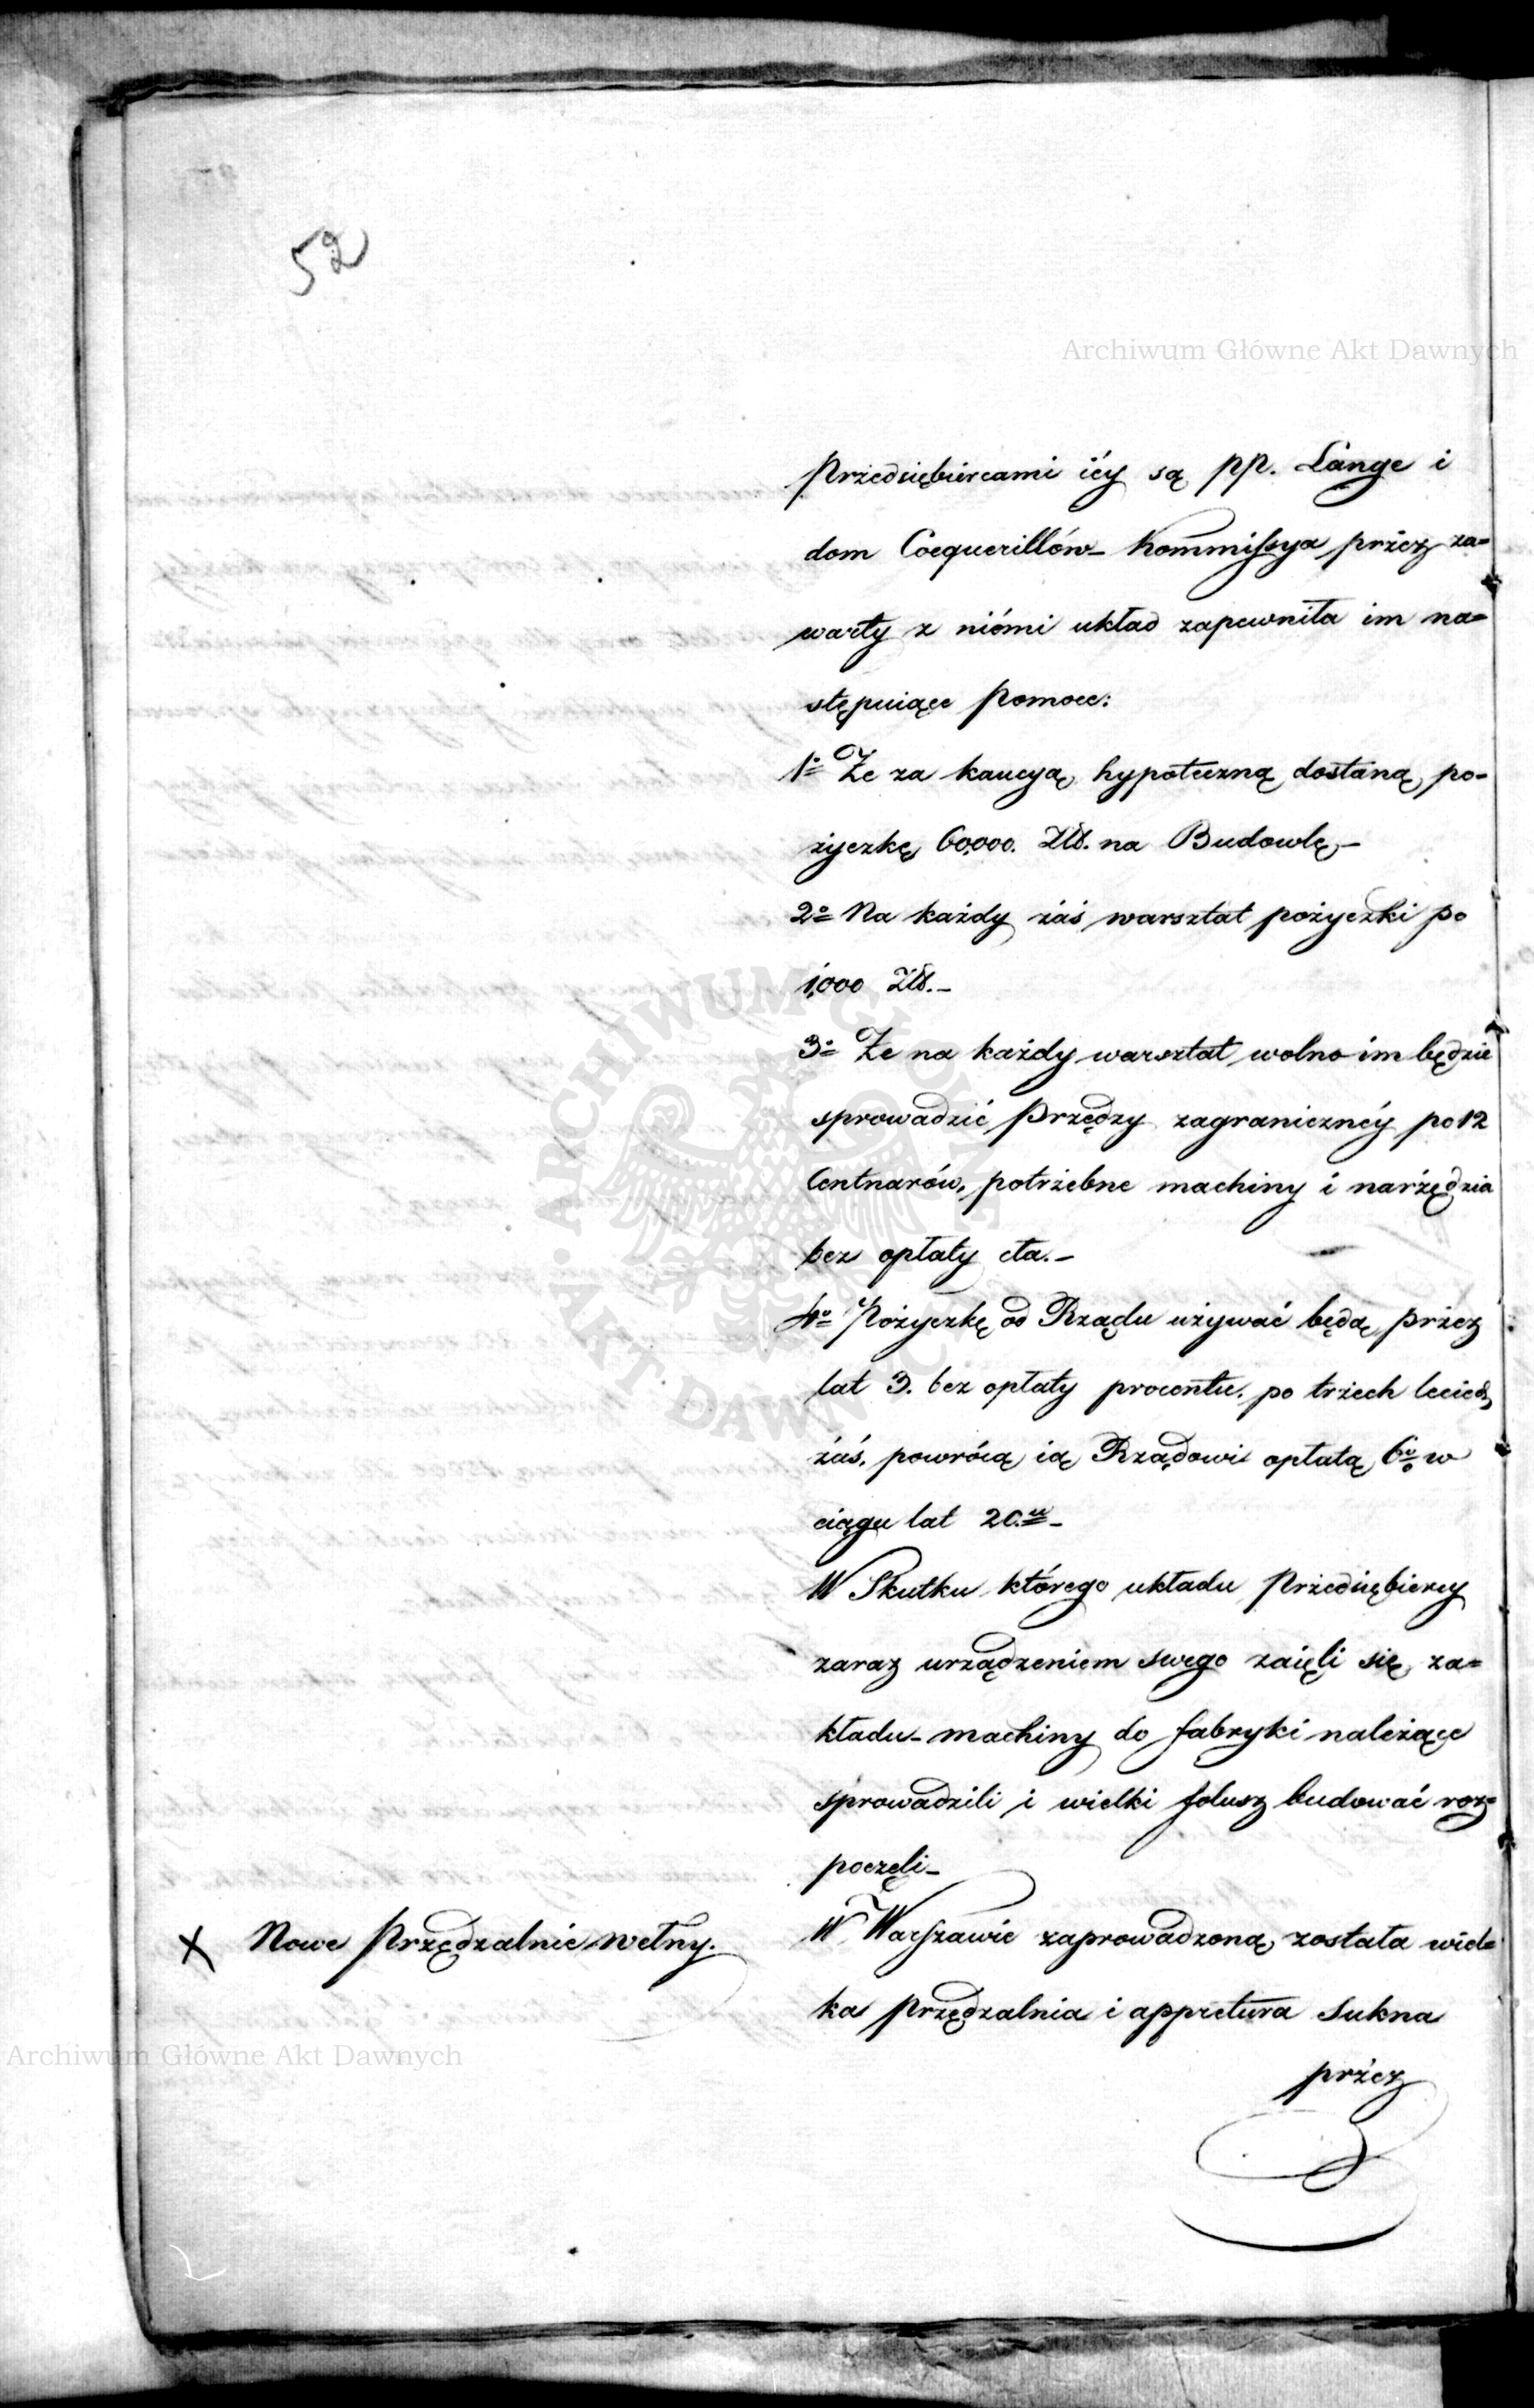 52
Archiwum Główne Akt Dawnych
Przedsiębiercami iéy są pp. Lange i
dom Cocquerillów– Kommissya przez za=
warty z niémi układ zapewniła im na=
stępuiące pomoce:
1º Że za kaucyą hypoteczną dostaną po-
życzkę 60,000. Złł. na Budowlę–
2º Na każdy zaś warsztat pożyczki po
1,000 Złł.–
3º Że na każdy warsztat wolno im będzie
sprowadzić przędzy zagranicznéy po 12
Centnarów, potrzebne machiny i narzędzia
bez opłaty cła.–
4º Pożyczkę od Rządu używać będą przez
lat 3. bez opłaty procentu. po trzech leciech
zaś, powrócą ią Rządowi opłatą 6% w
ciągu lat 20.u–
W Skutku którego układu Przedsiębiercy
zaraz urządzeniem swego zaięli się za=
kładu– machiny do fabryki należące
sprowadzili i wielki folusz budować roz=
poczęli–
X Nowe Przędzalnie wełny.
W Warszawie zaprowadzoną została wiel=
ka przędzalnia i appretura Sukna
przez
Archiwum Główne Akt Dawnych
ARCHIWUM GŁÓWNE • AKT DAWNYCH •